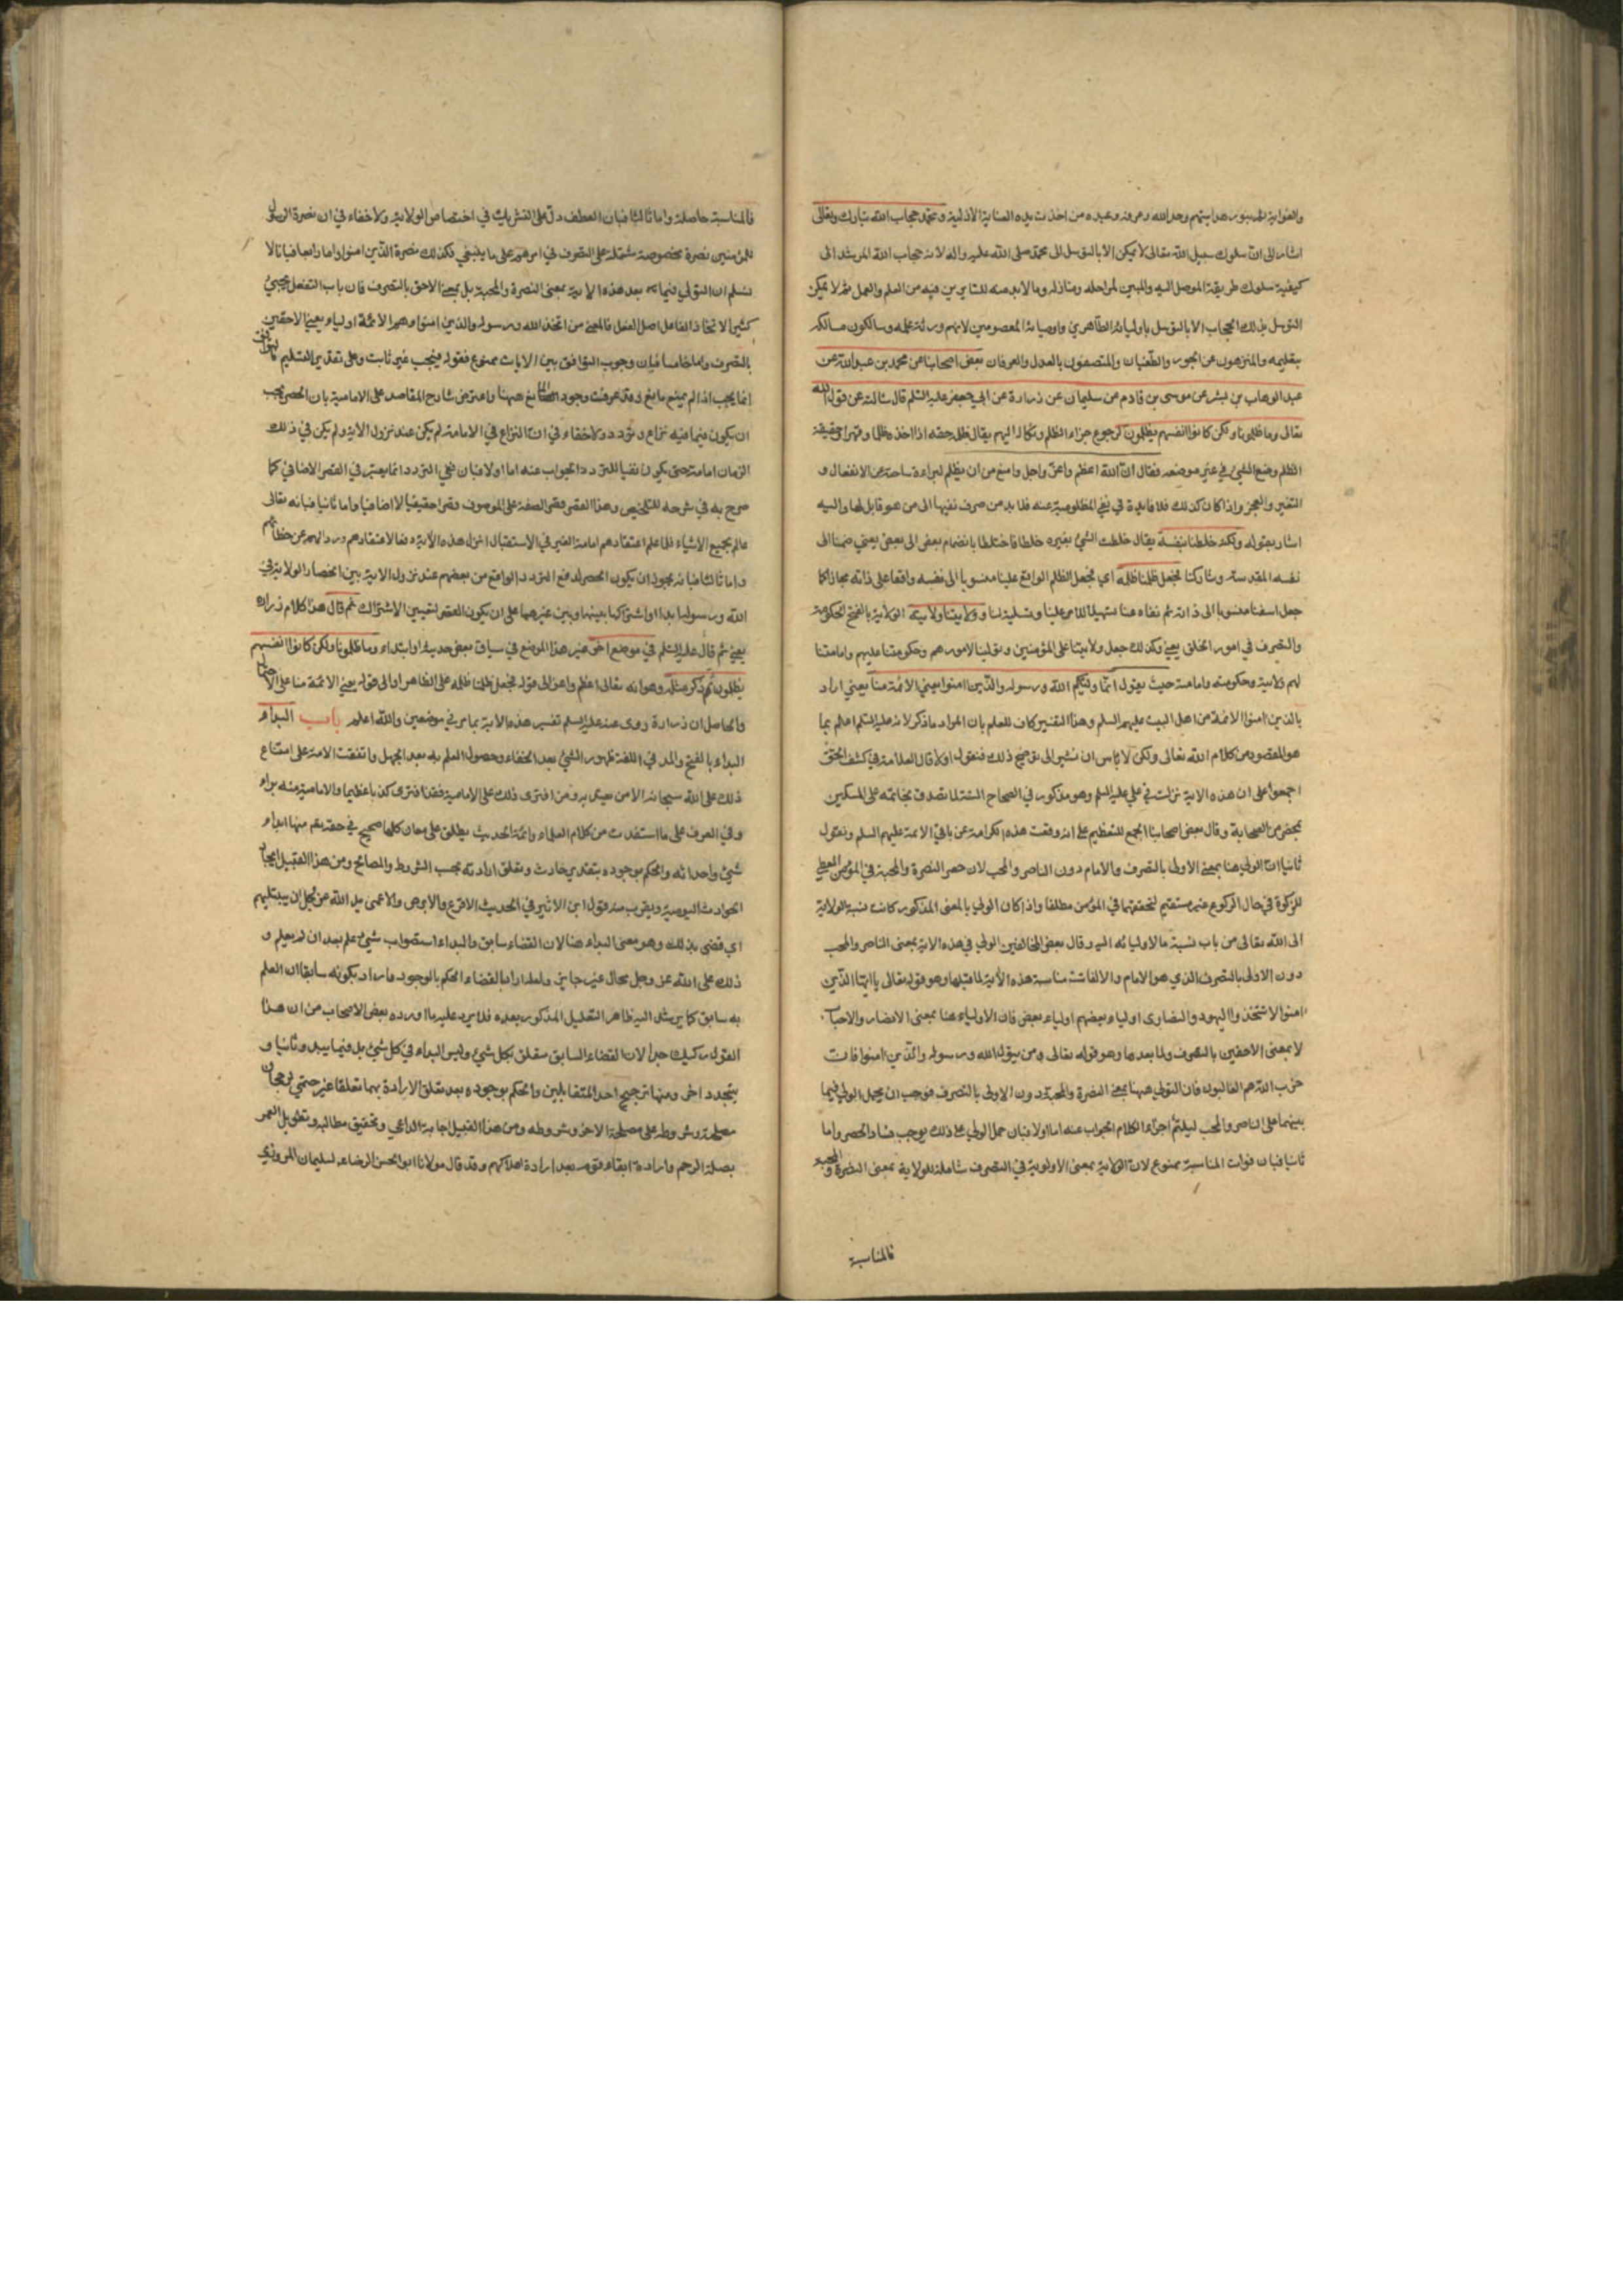 والغواية المبتور هدايتهم وحد الله وعرفه وعبده من اخذت بيده العناية الازلية ومحمد حجاب الله تبارك وتعالى
اشار الى ان سلوك سبيل الله تعالى لا يمكن الا بالتوسل الى محمد صلى الله عليه واله لانه حجاب الله المرشد الى
كيفية سلوك طريقة الموصل اليه والمبين لمراحله ومنازله وما لا بد منه للسايرين فيه من العلم والعمل ثم لا يمكن
التوسل بذلك الحجاب الا بالتوسل باوليائه الطاهرين واوصيائه المعصومين لانهم ورثة علمه وسالكون مسالكه
بتعليمه والمنزهون عن الجور والطغيان والمتصفون بالعدل والعرفان بعض اصحابنا عن محمد بن عبد الله عن
عبد الوهاب بن بشر عن موسى بن قادم عن سليمان عن زرارة عن ابي جعفر عليه السلم قال سالته عن قول الله
تعالى وما ظلمونا ولكن كانوا انفسهم يظلمون لرجوع جزاء الظلم ونكاله اليهم يقال ظلمه حقه اذا اخذه ظلما وقهرا وحقيقة
الظلم وضع الشئ في غير موضعه فقال ان الله اعظم واعز واجل وامنع من ان يظلم لبراءة ساحته عن الانفعال و
التغير والعجز واذا كان كذلك فلا فايدة في نفي المظلومية عنه فلا بد من صرف نفيها الى من هو قابل لها واليه
اشار بقوله ولكنه خلطنا بنفسه يقال خلطت الشئ بغيره خلطا فاختلطا بانضمام بعض الى بعض يعني ضمنا الى
نفسه المقدسة وشاركنا فجعل ظلمنا ظلمه اي فجعل الظلم الواقع علينا منسوبا الى نفسه واقعا على ذاته مجازا كما
جعل اسفنا منسوبا الى ذاته ثم نفاه عنا تسهيلا للامر علينا وتسلية لنا وولايتنا ولايته الولاية بالفتح الحكومة
والتصرف في امور الخلق يعني وكذلك جعل ولايتنا على المؤمنين وتولينا لامورهم وحكومتنا عليهم وامامتنا
لهم ولايته وحكومته وامامته حيث يقول انما وليكم الله ورسوله والذين امنوا يعني الائمة منا يعني اراد
بالذين امنوا الائمة من اهل البيت عليهم السلم وهذا التفسير كاف للعلم بان المراد ما ذكر لانه عليه السلم اعلم بما
هو المقصود من كلام الله تعالى ولكن لا باس ان نشير الى توضيح ذلك فنقول اولا قال العلامة في كشف الحق
اجمعوا على ان هذه الاية نزلت في علي عليه السلم وهو مذكور في الصحاح الستة لما تصدق بخاتمه على المسكين
بمحضر من الصحابة وقال بعض اصحابنا الجمع للتعظيم على انه وقعت هذه الكرامة عن باقي الائمة عليهم السلم ونقول
ثانيا ان الولي هنا بمعنى الاولى بالتصرف والامام دون الناصر والمحب لان حصر النصرة والمحبة في المؤمن المعطي
للزكوة في حال الركوع غير مستقيم لتحققهما في المؤمن مطلقا واذا كان الولي بالمعنى المذكور كانت نسبة الولاية
الى الله تعالى من باب نسبة ما لاوليائه اليه وقال بعض المخالفين الولي في هذه الاية بمعنى الناصر والمحب
دون الاولى بالتصرف الذي هو الامام والا لفاتت مناسبة هذه الاية لما قبلها وهو قوله تعالى يا ايها الذين
امنوا لا تتخذوا اليهود والنصارى اولياء بعضهم اولياء بعض فان الاولياء هنا بمعنى الانصار والاحباب
لا بمعنى الاحقين بالتصرف ولما بعدها وهو قوله تعالى ومن يتول الله ورسوله والذين امنوا فان
حزب الله هم الغالبون فان التولي ههنا بمعنى النصرة والمحبة دون الاولى بالتصرف فوجب ان يحمل الولي فيما
بينهما على الناصر والمحب ليلتئم اجزاء الكلام الجواب عنه اما اولا فبان حمل الولي على ذلك يوجب فساد الحصر واما
ثانيا فبان فوات المناسبة ممنوع لان الولاية بمعنى الاولوية في التصرف شاملة للولاية بمعنى النصرة والمحبة
فالمناسبة
فالمناسبة حاصلة واما ثالثا فبان العطف دل على التشريك في اختصاص الولاية ولا خفاء في ان نصرة الرسول
للمؤمنين نصرة مخصوصة مشتملة على التصرف في امرهم على ما ينبغي فكذلك نصرة الذين امنوا واما رابعا فبانا لا
نسلم ان التولي فيما بعد هذه الاية بمعنى النصرة والمحبة بل بمعنى الاحق بالتصرف فان باب التفعل يجيئ
كثيرا لاتخاذ الفاعل اصل الفعل فالمعنى من اتخذ الله ورسوله والذين امنوا وهم الائمة اولياء يعني الاحقين
بالتصرف واما خامسا فبان وجوب التوافق بين الايات ممنوع فقوله فيجب غير ثابت وعلى تقدير التسليم فالتوافق
انما يجب اذا لم يمنع مانع وقد عرفت وجود المانع ههنا واعترض شارح المقاصد على الامامية بان الحصر يجب
ان يكون فيما فيه نزاع وتردد ولا خفاء في ان النزاع في الامامة لم يكن عند نزول الاية ولم يكن في ذلك
الزمان امامة حتى يكون نفيا للتردد الجواب عنه اما اولا فبان نفي التردد انما يعتبر في القصر الاضافي كما
صرح به في شرحه للتلخيص وهذا القصر قصر الصفة على الموصوف وقصرا حقيقيا لا اضافيا واما ثانيا فبانه تعالى
عالم بجميع الاشياء فلما علم اعتقادهم امامة الغير في الاستقبال انزل هذه الاية دفعا لاعتقادهم وردا لهم عن خطائهم
واما ثالثا فبانه يجوز ان يكون الحصر لدفع التردد الواقع من بعضهم عند نزول الاية بين انحصار الولاية في
الله ورسوله ابدا او اشتراكها بينهما وبين غيرهما على ان يكون القصر لتعيين الاشتراك ثم قال هذا كلام زرارة
يعني ثم قال عليه السلم في موضع اخر غير هذا الموضع في سياق بعض حديثه او ابتداء وما ظلمونا ولكن كانوا انفسهم
يظلمون ثم ذكر مثله وهو انه تعالى اعظم واعز الى قوله فجعل ظلمنا ظلمه على الظاهر او الى قوله يعني الائمة منا على الاحتمال
والحاصل ان زرارة روى عنه عليه السلم تفسير هذه الاية بما مر في موضعين والله اعلم باب البداء
البداء بالفتح والمد في اللغة ظهور الشئ بعد الخفاء وحصول العلم به بعد الجهل واتفقت الامة على امتناع
ذلك على الله سبحانه الا من لا يعتد به ومن افترى ذلك على الامامية فقد افترى كذبا عظيما والامامية منه براء
وفي العرف على ما استفدت من كلام العلماء وائمة الحديث يطلق على معان كلها صحيح في حقه تعالى منها ابداء
شئ واحداثه والحكم بوجوده بتقدير حادث وتعلق ارادته بحسب الشروط والمصالح ومن هذا القبيل ايجاد
الحوادث اليومية ويقرب منه قول ابن الاثير في الحديث الاقرع والابرص والاعمى بدا لله عز وجل ان يبتليهم
اي قضى بذلك وهو معنى البداء هنا لان القضاء سابق والبداء استصواب شئ علم بعد ان لم يعلم و
ذلك على الله عز وجل محال غير جايز ولعله اراد بالقضاء الحكم بالوجود واراد بكونه سابقا ان العلم
به سابق كما يرشد اليه ظاهر التعليل المذكور بعده فلا يرد عليه ما اورده بعض الاصحاب من ان هذا
القول ركيك جدا لان القضاء السابق متعلق بكل شئ وليس البداء في كل شئ بل فيما يبدو ثانيا و
يتجدد اخر ومنها ترجيح احد المتقابلين والحكم بوجوده بعد تعلق الارادة بهما تعلقا غير حتمي لرجحان
مصلحته وشروطه على مصلحة الاخر وشروطه ومن هذا القبيل اجابة الداعي وتحقيق مطالبه وتطويل العمر
بصلة الرحم وارادة ابقاء قوم بعد ارادة اهلاكهم وقد قال مولانا ابو الحسن الرضاء لسليمان المروزي